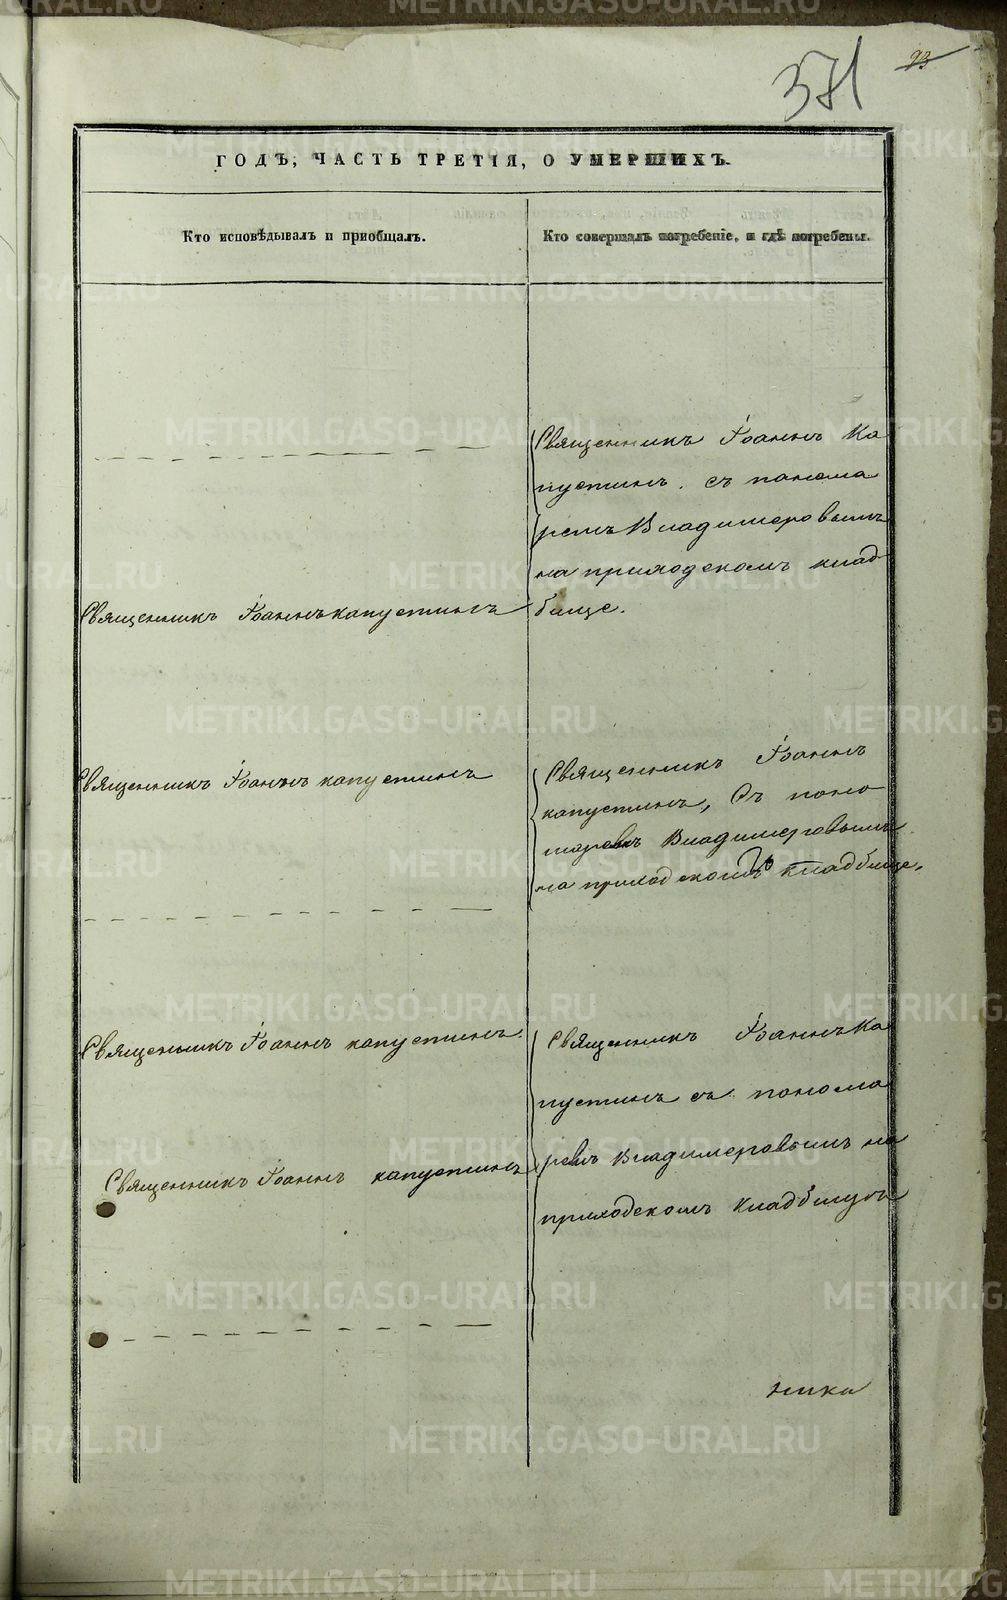 371
93
ГОДЪ, ЧАСТЬ ТРЕТІЯ, О УМЕРШИХЪ.
Кто исповѣдывалъ и пріобщалъ.
Кто совершалъ погребеніе, и гдѣ погребены.
Священникъ Іоаннъ Ка
пустинъ. съ понома
ремъ Владимеровымъ
на приходскомъ клад
бище.
Священникъ Іоаннъ капустинъ
Священникъ Іоаннъ капустинъ
Священникъ Іоаннъ
капустинъ, Съ поно
маревъ Владимеровымъ
на приходскомъ кладбище.
Священникъ Іоаннъ капустинъ.
Священникъ Іоаннъ капустинъ
Священникъ Іоаннъ Ка
пустинъ съ понома
ремъ Владимеровымъ на
приходскомъ кладбищѣ
ника
METRIKI.GASO-URAL.RU